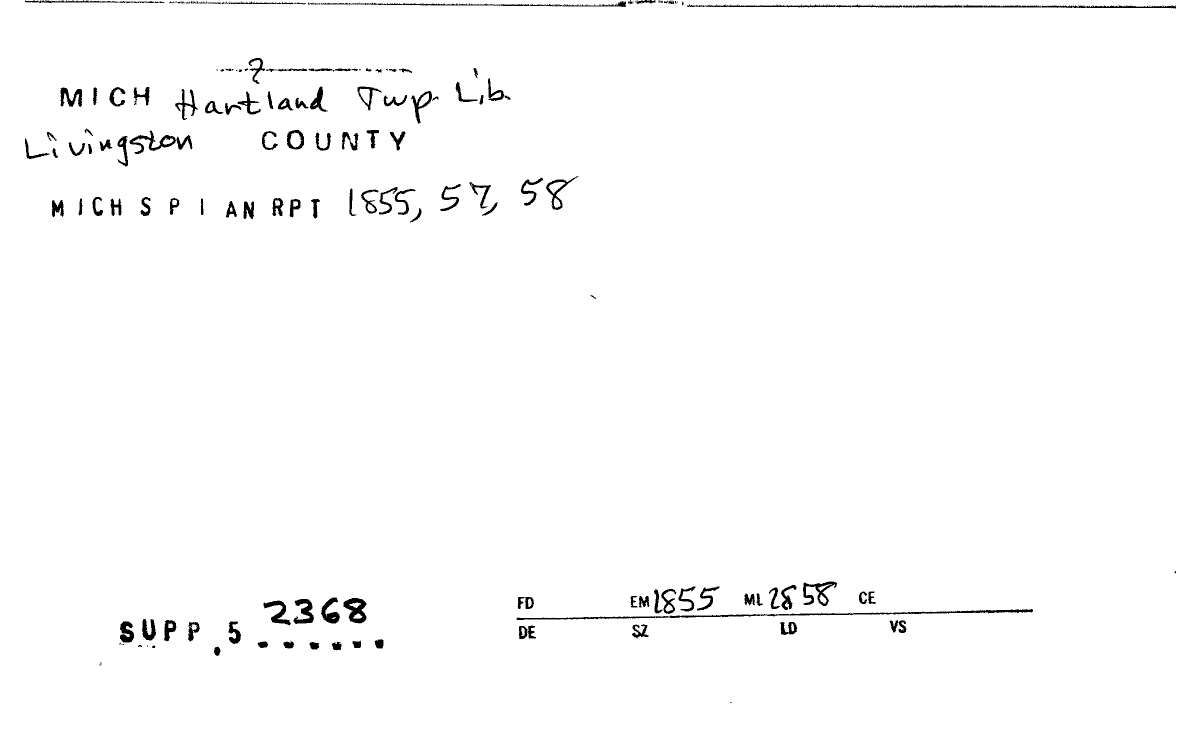 ?
MICH Hartland Twp. Lib.
Livingston COUNTY
MICH S P I AN RPT 1855, 57, 58
2368
SUPP.5 ......
FD EM 1855 ML 1858 CE
DE SZ LD VS